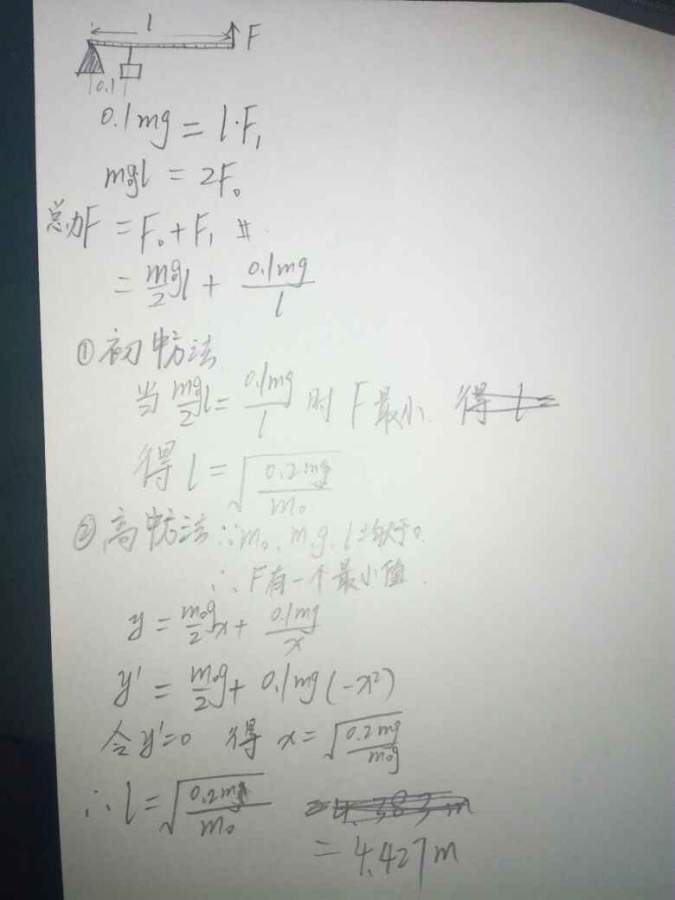 l
F
0.1
0.1mg = l·F₁
m₀gl = 2F₀
总力F = F₀+F₁
= m₀g/2 l + 0.1mg/l
①初中方法
当 m₀g/2 l = 0.1mg/l 时 F最小 得 l=
得 l = √(0.2mg/m₀)
②高中方法 ∵m₀, m, g, l 均大于0
∴F有一个最小值.
y = m₀g/2 x + 0.1mg/x
y' = m₀g/2 + 0.1mg(-x²)
令y'=0 得 x= √(0.2mg/m₀g)
∴l = √(0.2m/m₀) =4.383m
= 4.427m